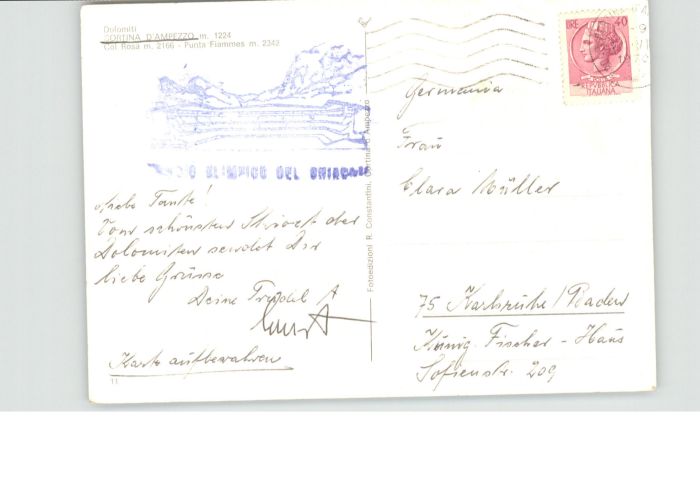 Dolomiti
CORTINA D'AMPEZZO m. 1224
Col Rosà m. 2166 - Punta Fiammes m. 2242
OLIMPICO DEL GHIACCIO
Liebe Tante!
Vom schönsten Skiort der
Dolomiten sendet Dir
liebe Grüsse
Deine Trudel A
Karte aufbewahren
11
Fotoedizioni R. Constantini, Cortina d'Ampezzo
LIRE 40
REPVBBLICA
ITALIANA
Germania
Frau
Clara Müller
75 Karlsruhe/Baden
Künig. Fischer - Haus
Sofienstr. 209